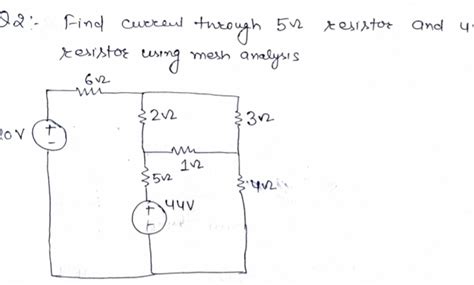 Q2:- Find current through 5Ω resistor and 4
resistor using mesh analysis
6Ω
2Ω
3Ω
0V
+
-
1Ω
5Ω
4Ω
+
44V